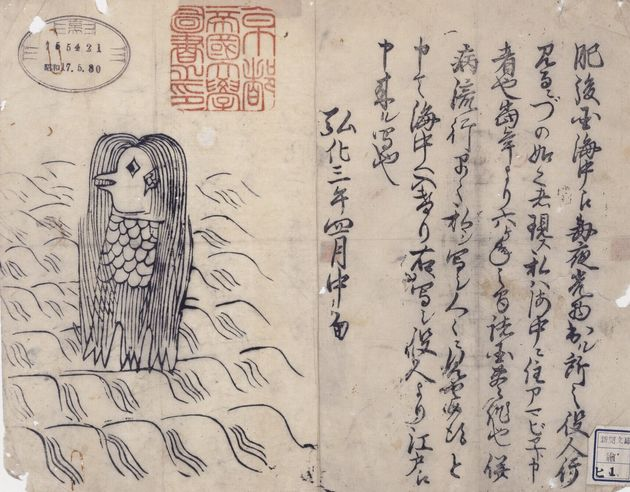 肥後国海中え毎夜光物出ル所之役人行
見るニづの如く者現ス私ハ海中ニ住アマビヱト申
者也当年より六ヶ年之間諸国豊作也併
病流行早々私シ写シ人々ニ見せ候得と
申て海中へ入けり右写シ役人より江戸え
申来ル写也
弘化三年四月中旬
京都
帝國大學
圖書之印
165421
昭和17.5.30